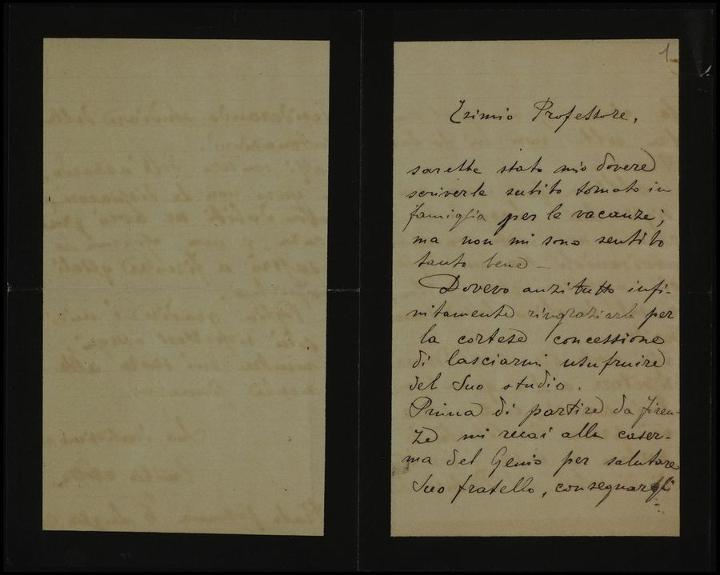 1
Esimio Professore,
sarebbe stato mio dovere
scriverle subito tornato in
famiglia per le vacanze;
ma non mi sono sentito
tanto bene –
Dovevo anzitutto infi-
nitamente ringraziarla per
la cortese concessione
di lasciarmi usufruire
del Suo studio.
Prima di partire da Firen-
ze mi recai alla caser-
ma del Genio per salutare
Suo fratello, consegnargli